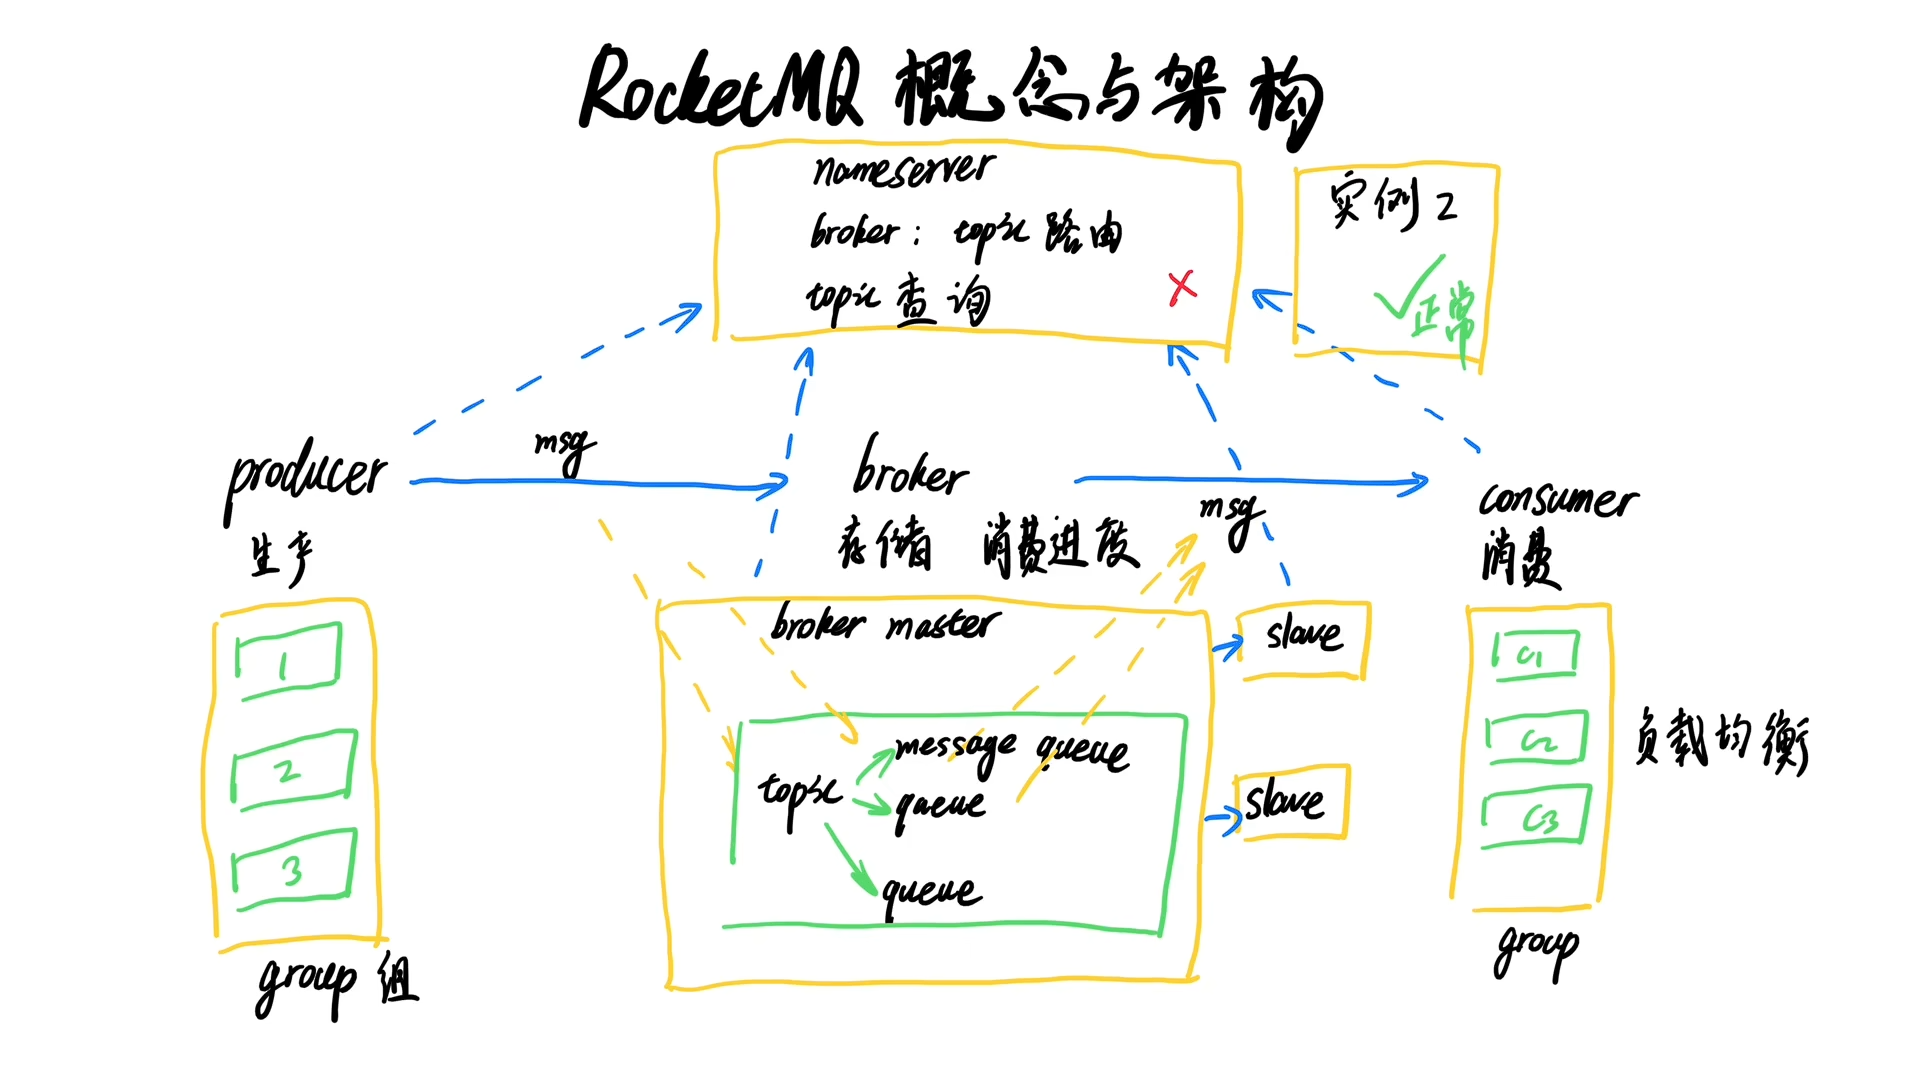 RocketMQ 概念与架构
nameserver
broker: topic 路由
topic 查询
实例 2
正常
producer
生产
msg
broker
存储 消费进度
msg
consumer
消费
broker master
slave
1
2
3
group 组
topic
message queue
queue
queue
slave
C1
C2
C3
负载均衡
group